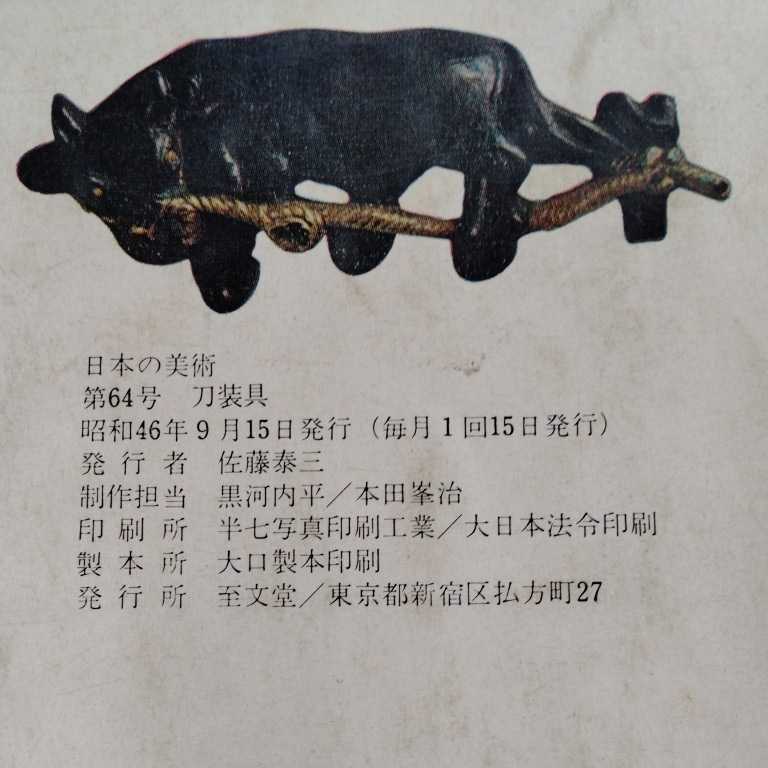 日本の美術
第64号　刀装具
昭和46年9月15日発行（毎月1回15日発行）
発行者　佐藤泰三
制作担当　黒河内平／本田峯治
印刷所　半七写真印刷工業／大日本法令印刷
製本所　大口製本印刷
発行所　至文堂／東京都新宿区払方町27